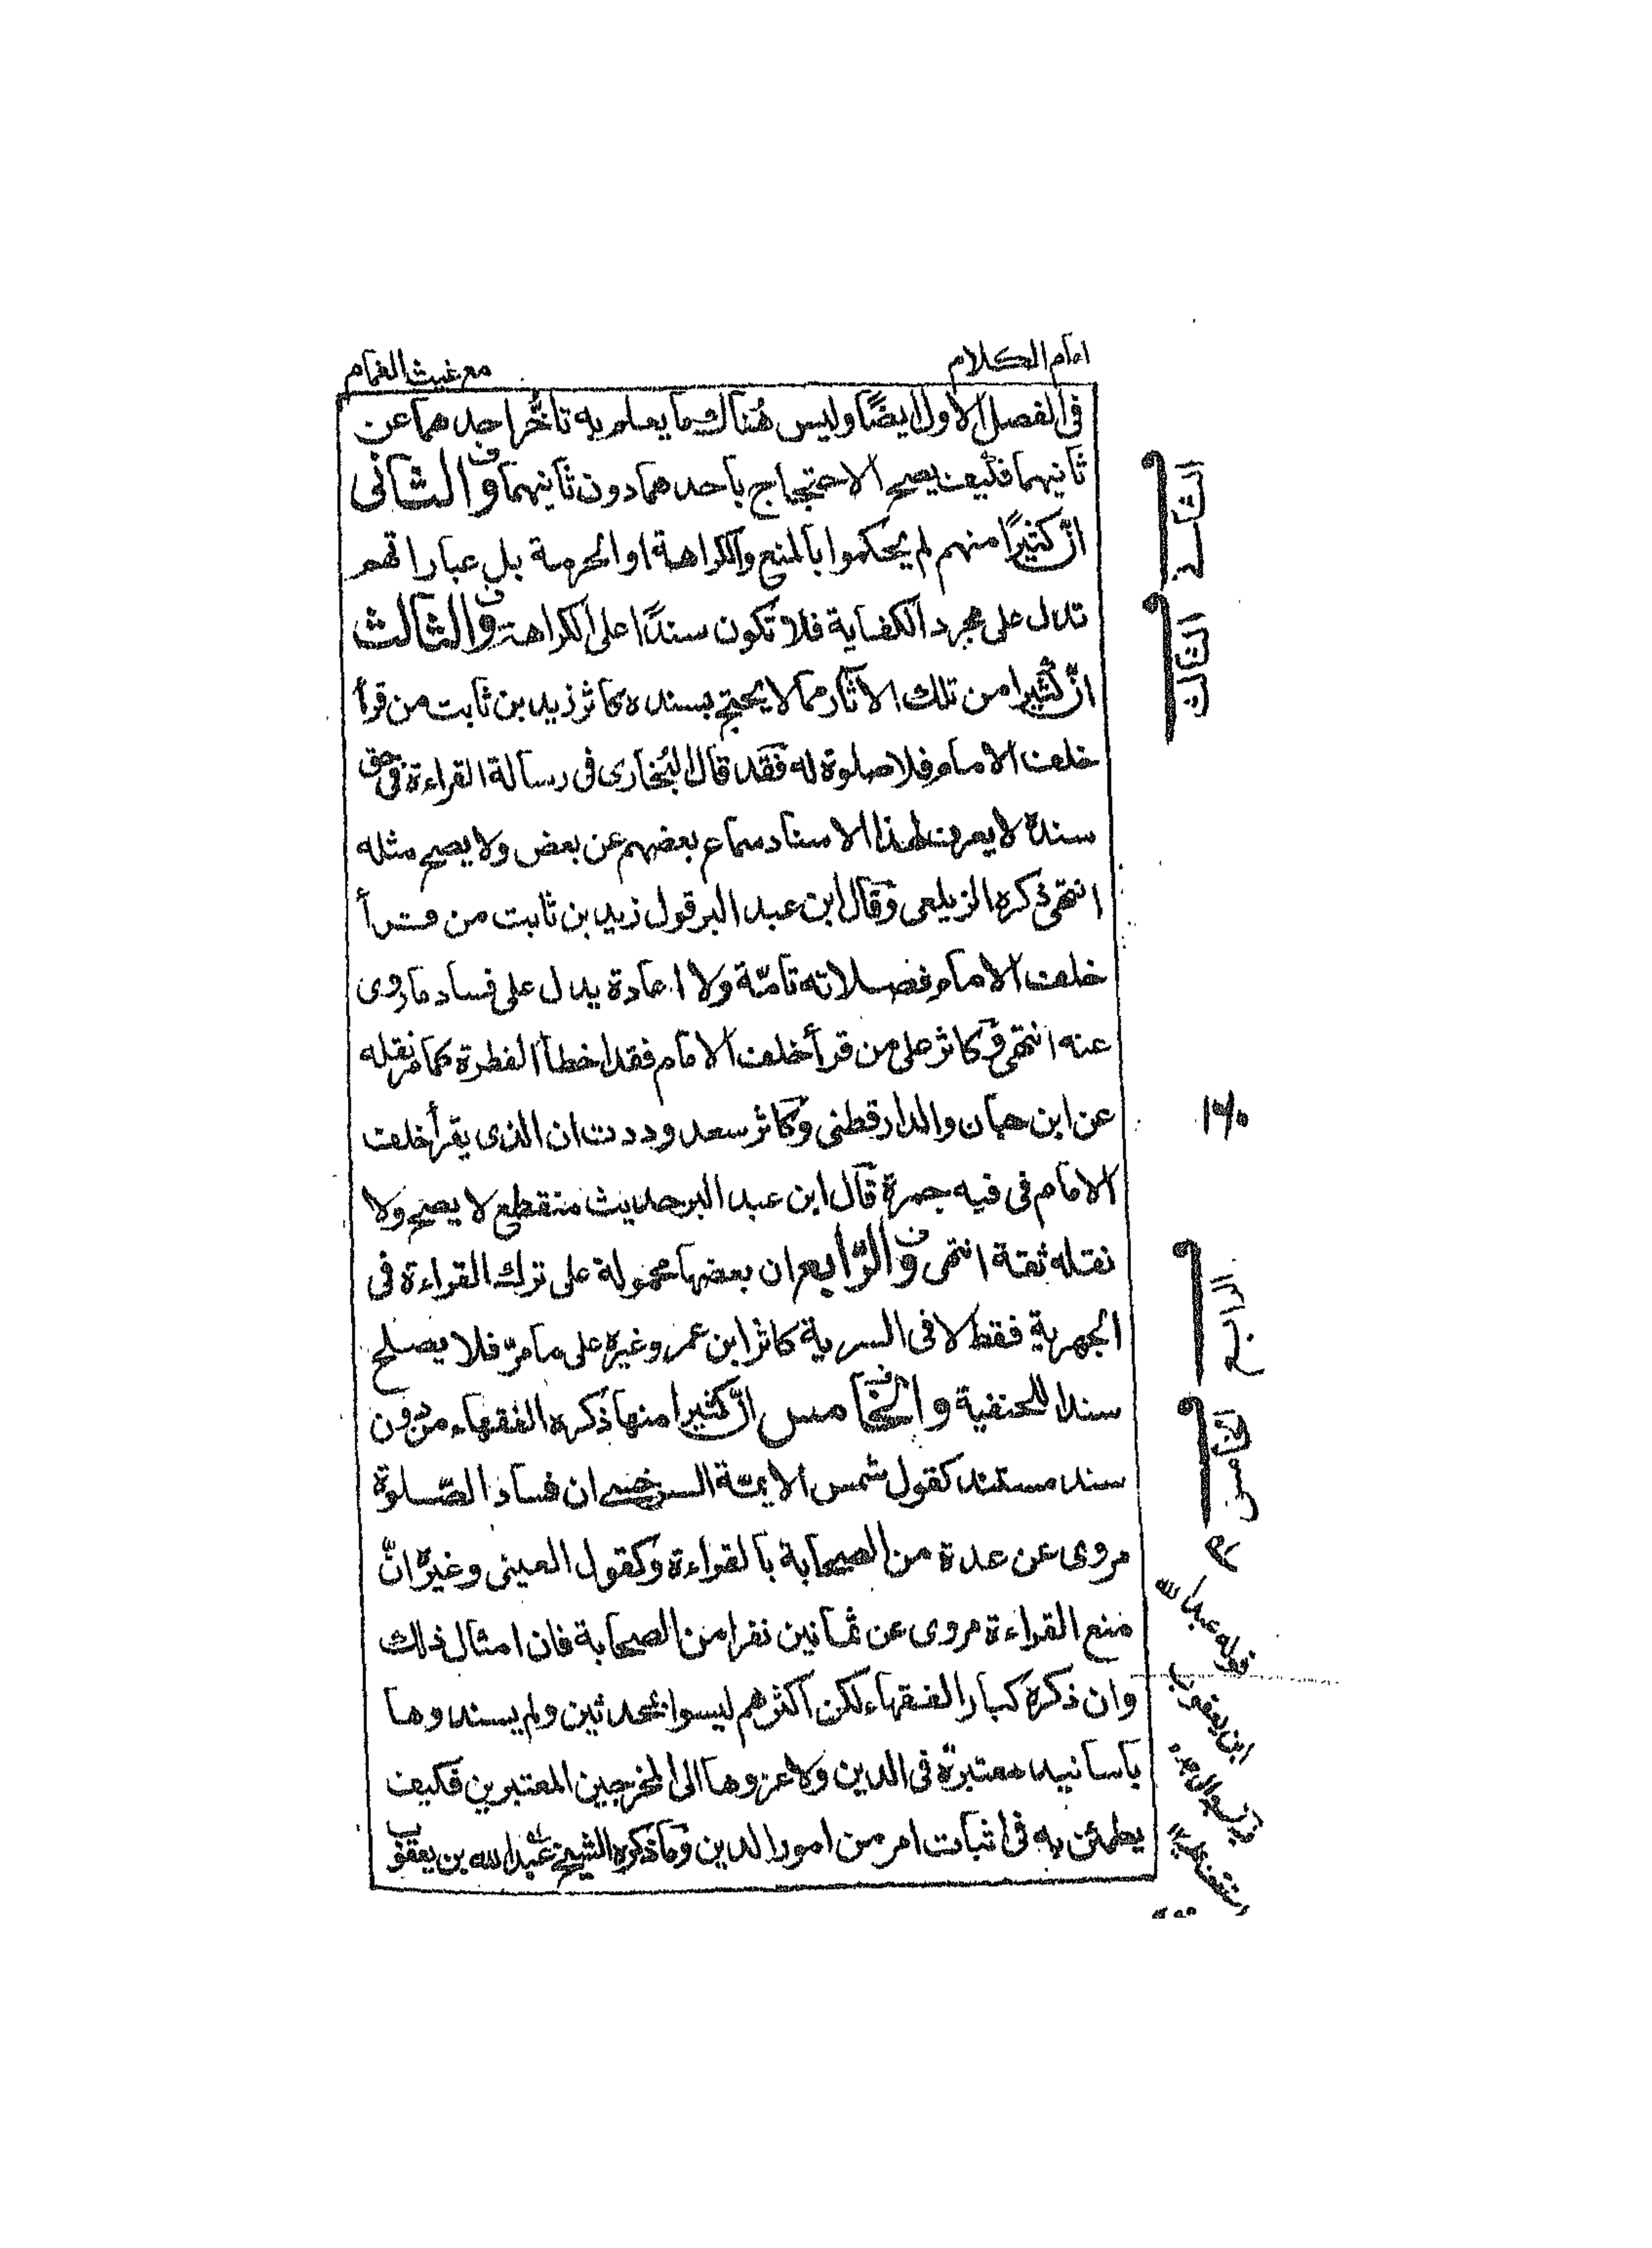 امام الكلام
مع غيث الغمام
فى الفصل الاول ايضًا وليس هُناك ما يعلم به تأخُّر احدهما عن
ثانيهما فكيف يصح الاحتجاج باحدهما دون ثانيهما والثانى
انّ كثيرًا منهم لم يحكموا بالمنع والكراهة او الحرمة بل عباراتهم
تدل على مجرد الكفاية فلا تكون سندًا على الكراهة والثالث
انّ كثيرا من تلك الاثار مما لا يحتج بسنده كاثر زيد بن ثابت من قرأ
خلف الامام فلا صلوة له فقد قال البُخارى فى رسالة القراءة فى حق
سنده لا يعرف لهذا الاسناد سماع بعضهم عن بعض ولا يصح مثله
انتهى ذكره الزيلعى وقال ابن عبد البر قول زيد بن ثابت من قرأ
خلف الامام فصلاته تامّة ولا اعادة يدل على فساد ما روى
عنه انتهى وكاثر على من قرأ خلف الامام فقد اخطأ الفطرة كما مر نقله
عن ابن حبان والدارقطنى وكاثر سعد وددت ان الذى يقرأ خلف
الامام فى فيه جمرة قال ابن عبد البر حديث منقطع لا يصح ولا
نقله ثقة انتهى والرّابع ان بعضها محمولة على ترك القراءة فى
الجهرية فقط لا فى السرية كاثر ابن عمر وغيره على ما مرّ فلا يصلح
سندا للحنفية والخامس انّ كثيرا منها ذكره الفقهاء من دون
سند مستند كقول شمس الايمّة السرخسى ان فساد الصّلوة
مروى عن عدة من الصحابة بالقراءة وكقول العينى وغيره انّ
منع القراءة مروى عن ثمانين نفرا من الصحابة فان امثال ذلك
وان ذكره كبار الفقهاء لكن اكثرهم ليسوا بمحدثين ولم يسندوها
باسانيد معتبرة فى الدين ولا عزوها الى المخرجين المعتبرين فكيف
يطمئن به فى اثبات امر من امور الدين وما ذكره الشيخ عبد الله بن يعقوب
الثانى
الثالث
الرابع
الخامس
قوله عبد الله
ابن يعقوب